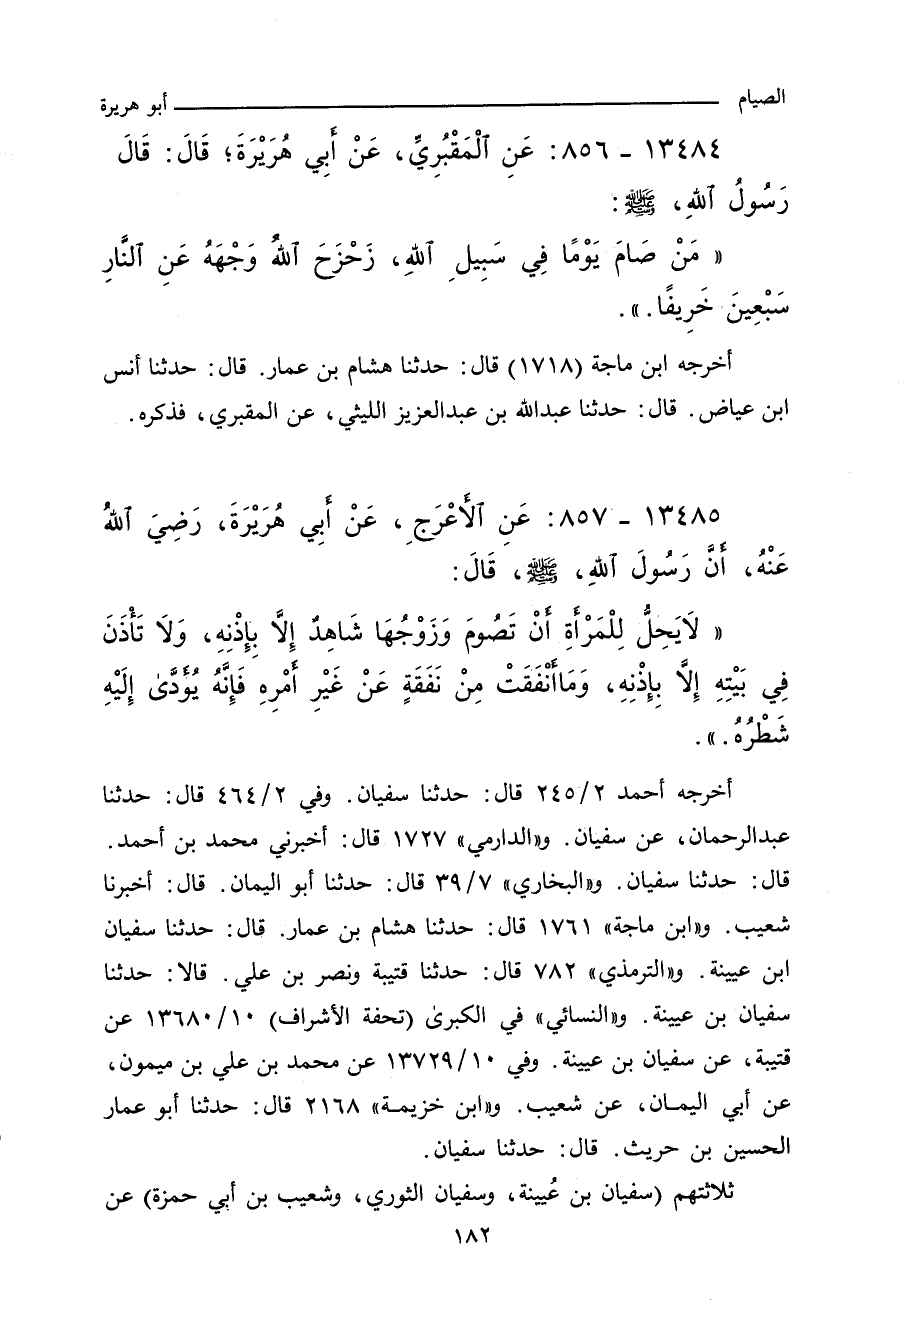 الصيام ــــــ أبو هريرة
١٣٤٨٤ ـ ٨٥٦: عَنِ ٱلْمَقْبُرِيِّ، عَنْ أَبِي هُرَيْرَةَ؛ قَالَ: قَالَ
رَسُولُ ٱللهِ، ﷺ:
« مَنْ صَامَ يَوْمًا فِي سَبِيلِ ٱللهِ، زَحْزَحَ ٱللهُ وَجْهَهُ عَنِ ٱلنَّارِ
سَبْعِينَ خَرِيفًا.».
أخرجه ابن ماجة (١٧١٨) قال: حدثنا هشام بن عمار. قال: حدثنا أنس
ابن عياض. قال: حدثنا عبدالله بن عبدالعزيز الليثي، عن المقبري، فذكره.
١٣٤٨٥ ـ ٨٥٧: عَنِ ٱلْأَعْرَجِ، عَنْ أَبِي هُرَيْرَةَ، رَضِيَ ٱللهُ
عَنْهُ، أَنَّ رَسُولَ ٱللهِ، ﷺ، قَالَ:
« لَايَحِلُّ لِلْمَرْأَةِ أَنْ تَصُومَ وَزَوْجُهَا شَاهِدٌ إِلَّا بِإِذْنِهِ، وَلَا تَأْذَنَ
فِي بَيْتِهِ إِلَّا بِإِذْنِهِ، وَمَاأَنْفَقَتْ مِنْ نَفَقَةٍ عَنْ غَيْرِ أَمْرِهِ فَإِنَّهُ يُؤَدَّىٰ إِلَيْهِ
شَطْرُهُ.».
أخرجه أحمد ٢٤٥/٢ قال: حدثنا سفيان. وفي ٤٦٤/٢ قال: حدثنا
عبدالرحمان، عن سفيان. و«الدارمي» ١٧٢٧ قال: أخبرني محمد بن أحمد.
قال: حدثنا سفيان. و«البخاري» ٣٩/٧ قال: حدثنا أبو اليمان. قال: أخبرنا
شعيب. و«ابن ماجة» ١٧٦١ قال: حدثنا هشام بن عمار. قال: حدثنا سفيان
ابن عيينة. و«الترمذي» ٧٨٢ قال: حدثنا قتيبة ونصر بن علي. قالا: حدثنا
سفيان بن عيينة. و«النسائي» في الكبرىٰ (تحفة الأشراف) ١٣٦٨٠/١٠ عن
قتيبة، عن سفيان بن عيينة. وفي ١٣٧٢٩/١٠ عن محمد بن علي بن ميمون،
عن أبي اليمـان، عن شعيب. و«ابن خزيمـة» ٢١٦٨ قال: حدثنا أبو عمار
الحسين بن حريث. قال: حدثنا سفيان.
ثلاثتهم (سفيان بن عُيينة، وسفيان الثوري، وشعيب بن أبي حمزة) عن
١٨٢